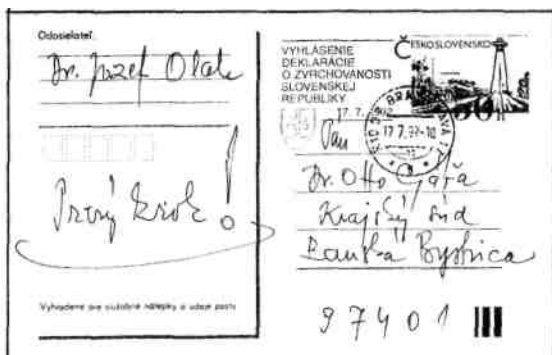 Odosielateľ:
Dr. Jozef Olah
Prvý krok!
Vyhradené pre služobné nálepky a údaje pošty
VYHLÁSENIE
DEKLARÁCIE
O ZVRCHOVANOSTI
SLOVENSKEJ
REPUBLIKY
17.7.
ČESKOSLOVENSKO
17.7.92-10
Pán
Dr. Otto
Krajský súd
Banská Bystrica
97401